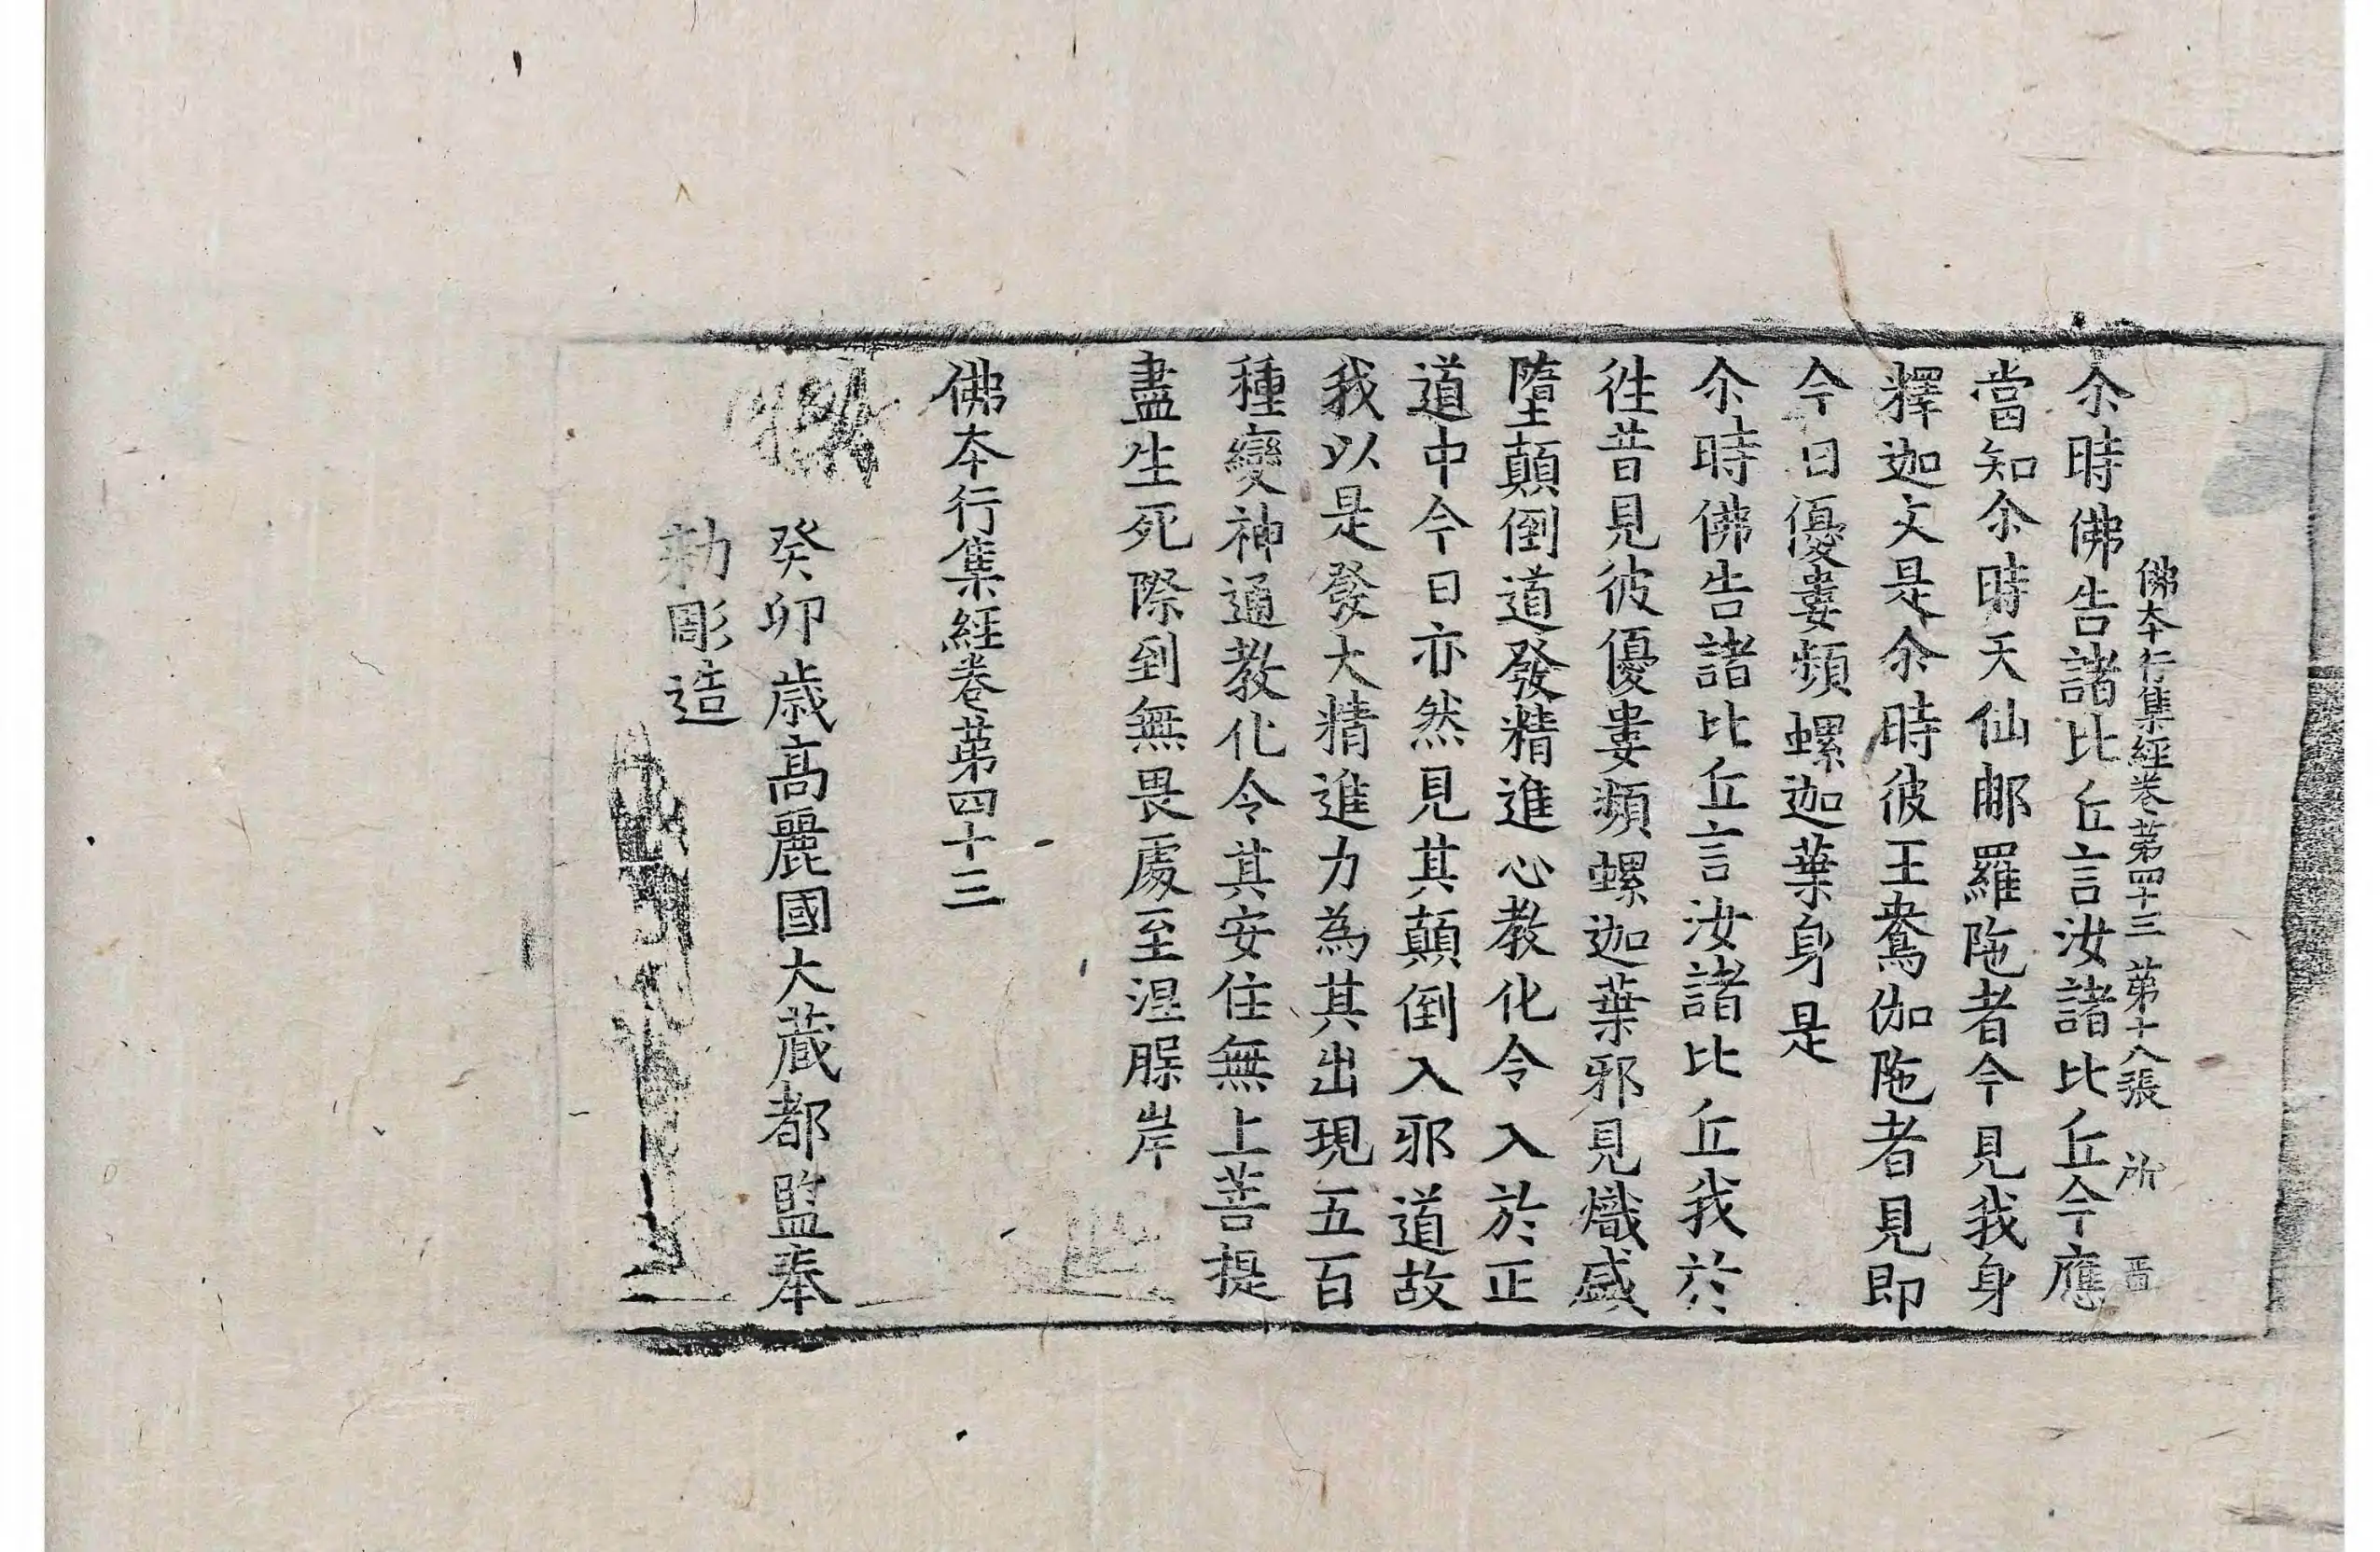 佛本行集經卷第四十三 第十八張 所
尒時佛告諸比丘言汝諸比丘今應
當知尒時天仙郍羅陁者今見我身
釋迦文是尒時彼王鴦伽陁者見即
今日優婁頻螺迦葉身是
尒時佛告諸比丘言汝諸比丘我於
徃昔見彼優婁頻螺迦葉邪見熾盛
墮顛倒道發精進心教化令入於正
道中今日亦然見其顛倒入邪道故
我以是發大精進力為其出現五百
種變神通教化令其安住無上菩提
盡生死際到無畏處至涅槃岸
佛本行集經卷第四十三
癸卯歳高麗國大藏都監奉
勑彫造